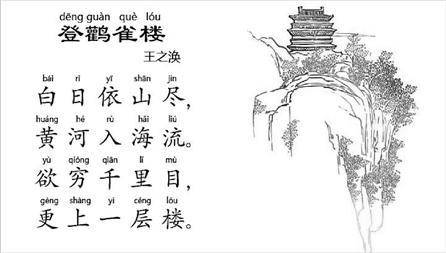 dēng guàn què lóu
登鹳雀楼
王之涣
bái rì yī shān jìn
白日依山尽，
huáng hé rù hǎi liú
黄河入海流。
yù qióng qiān lǐ mù
欲穷千里目，
gèng shàng yì céng lóu
更上一层楼。